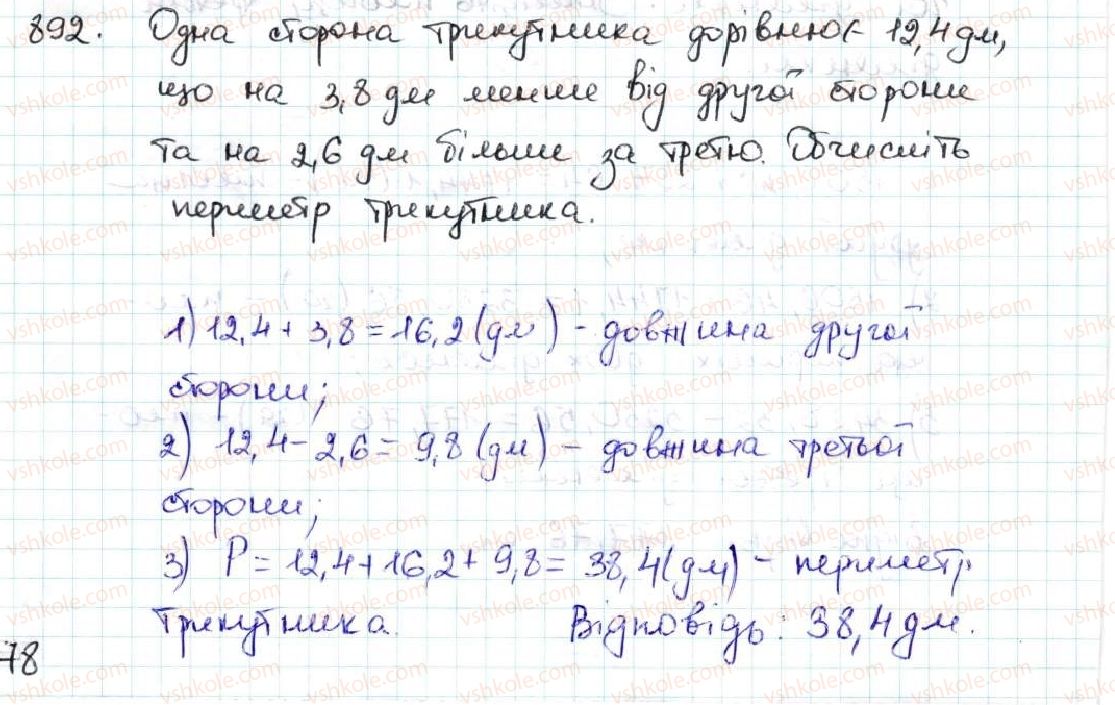 892. Одна сторона трикутника дорівнює 12,4 дм,
що на 3,8 дм менше від другої сторони
та на 2,6 дм більше за третю. Обчисліть
периметр трикутника.
1) 12,4 + 3,8 = 16,2 (дм) - довжина другої
сторони;
2) 12,4 - 2,6 = 9,8 (дм) - довжина третьої
сторони;
3) P = 12,4 + 16,2 + 9,8 = 38,4 (дм) - периметр
трикутника. Відповідь: 38,4 дм.
78
vshkole.com